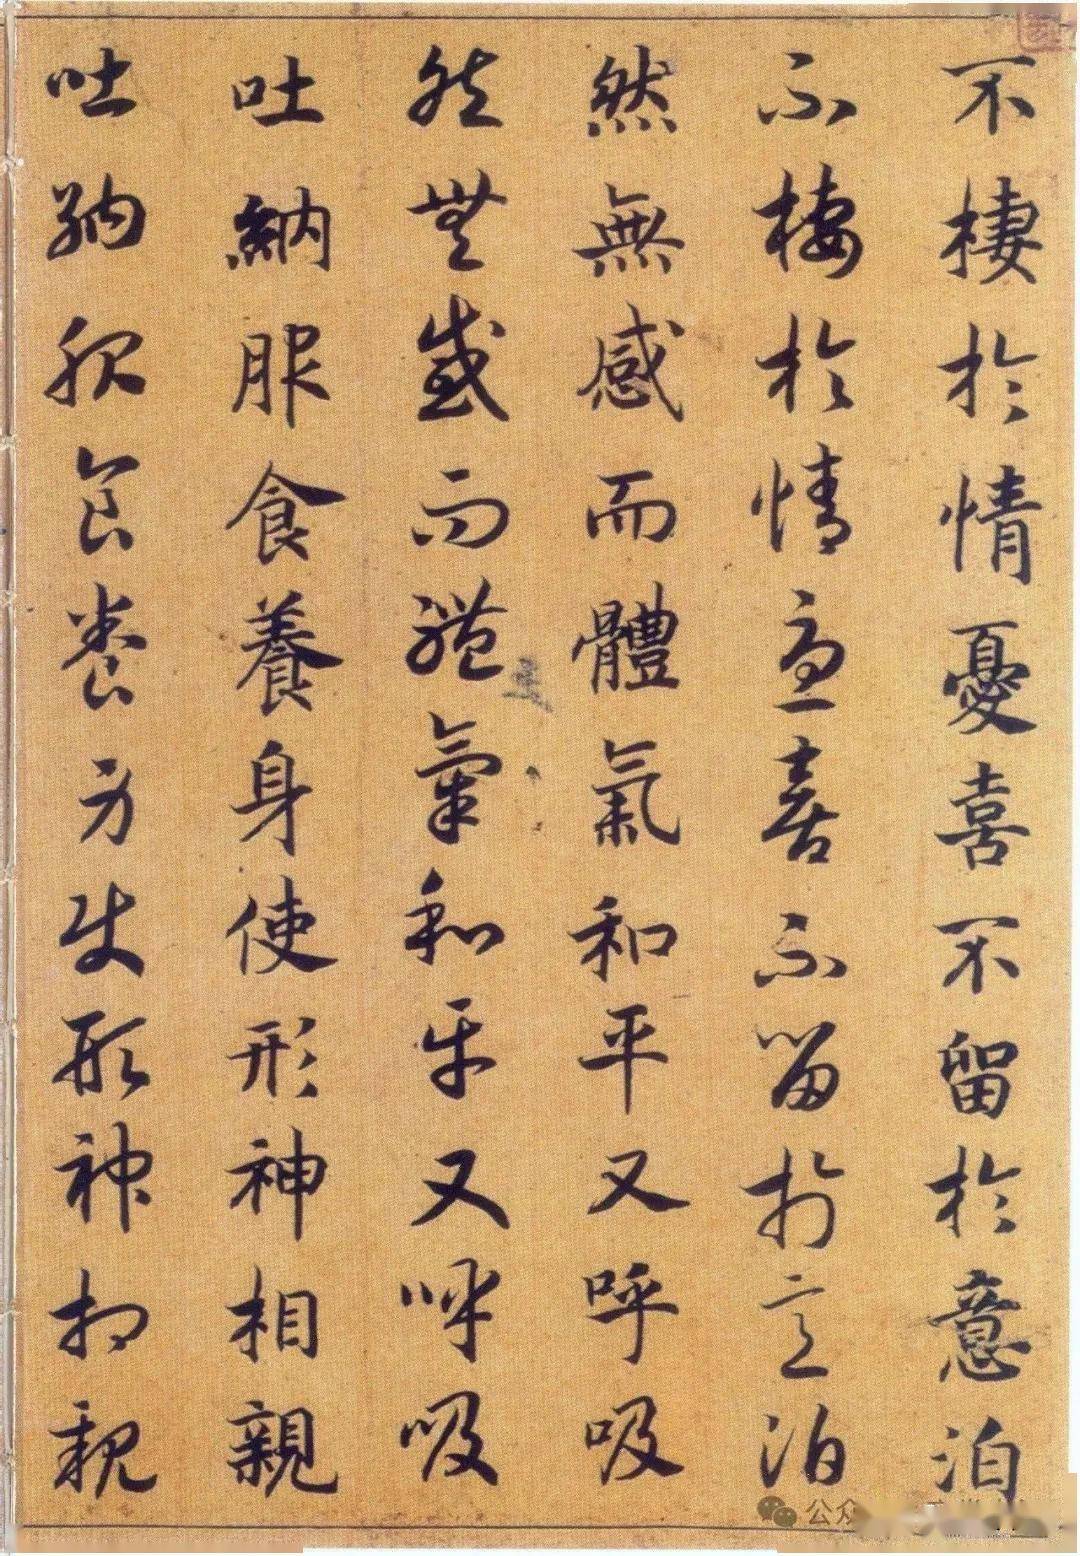 不棲於情憂喜不留於意泊
不棲於情憂喜不留於意泊
然無感而體氣和平又呼吸
然無感而體氣和平又呼吸
吐納服食養身使形神相親
吐納服食養身使形神相親
公众